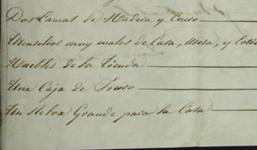 Dos Camas de Madera y Cuero
Utensilios muy malos de Casa, Mesa, y
Muebles de la Tienda
Una Caja de
Un Grande para la Casa